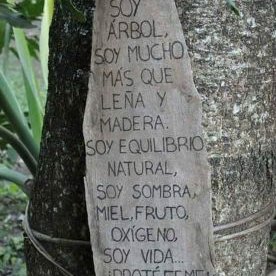 SOY
ÁRBOL,
SOY MUCHO
MÁS QUE
LEÑA Y
MADERA.
SOY EQUILIBRIO
NATURAL,
SOY SOMBRA,
MIEL, FRUTO,
OXÍGENO,
SOY VIDA...
¡PROTÉGEME